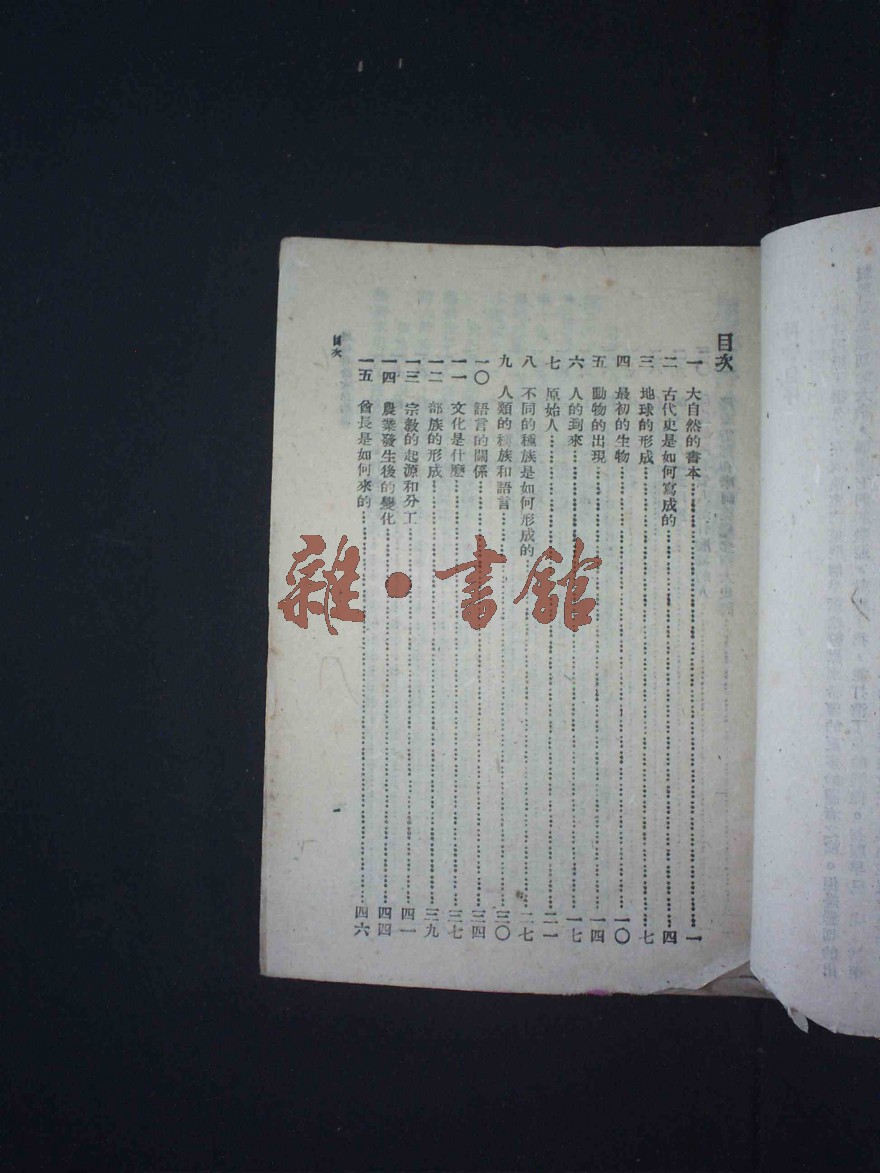 目次
一　大自然的書本……一
二　古代史是如何寫成的……四
三　地球的形成……七
四　最初的生物……一〇
五　動物的出現……一四
六　人的到來……一七
七　原始人……二一
八　不同的種族是如何形成的……二七
九　人類的種族和語言……三〇
一〇　語言的關係……三四
一一　文化是什麼……三七
一二　部族的形成……三九
一三　宗教的起源和分工……四一
一四　農業發生後的變化……四四
一五　酋長是如何來的……四六
目次
一
雜·書館